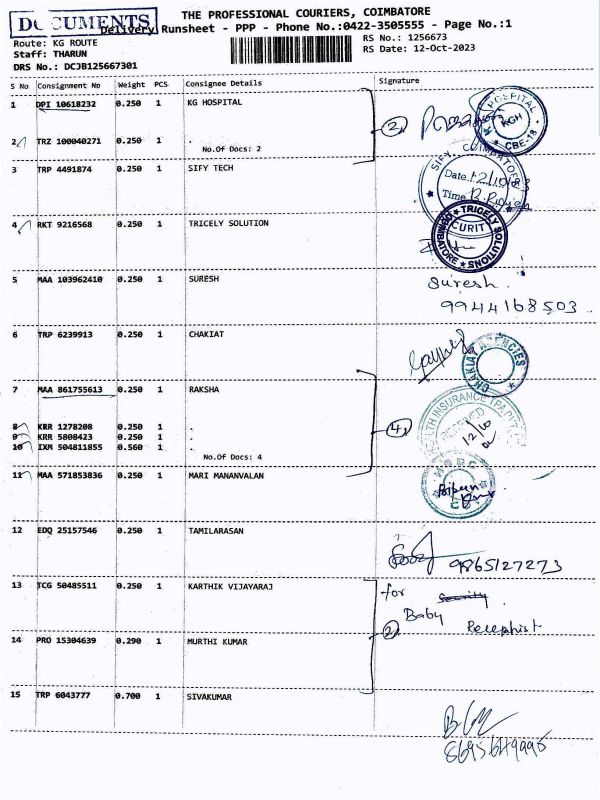 DOCUMENTS
THE PROFESSIONAL COURIERS, COIMBATORE
Delivery Runsheet - PPP - Phone No.:0422-3505555 - Page No.:1
Route: KG ROUTE
Staff: THARUN
DRS No.: DCJB125667301
RS No.: 1256673
RS Date: 12-Oct-2023
S No Consignment No Weight PCS Consignee Details Signature
1 DPI 10618232 0.250 1 KG HOSPITAL
2 HOSPITAL KGH CBE-18
2 TRZ 100040271 0.250 1 .
No.Of Docs: 2
3 TRP 4491874 0.250 1 SIFY TECH
SIFY, COIMBATORE
Date
Time
4 RKT 9216568 0.250 1 TRICELY SOLUTION
TRICELY SOLUTIONS CURIT COIMBATORE
5 MAA 103962410 0.250 1 SURESH
Suresh.
9944168503
6 TRP 6239913 0.250 1 CHAKIAT
CHAKIAT AGENCIES
7 MAA 861755613 0.250 1 RAKSHA
HEALTH INSURANCE TPA
RECEIVED
12/10
8 KRR 1278208 0.250 1 .
4
9 KRR 5808423 0.250 1 .
10 IXM 504811855 0.560 1 .
No.Of Docs: 4
11 MAA 571853836 0.250 1 MARI MANANVALAN
12 EDQ 25157546 0.250 1 TAMILARASAN
9865127273
13 TCG 50485511 0.250 1 KARTHIK VIJAYARAJ
for Security
Baby
2 Recephist
14 PRO 15304639 0.290 1 MURTHI KUMAR
15 TRP 6043777 0.700 1 SIVAKUMAR